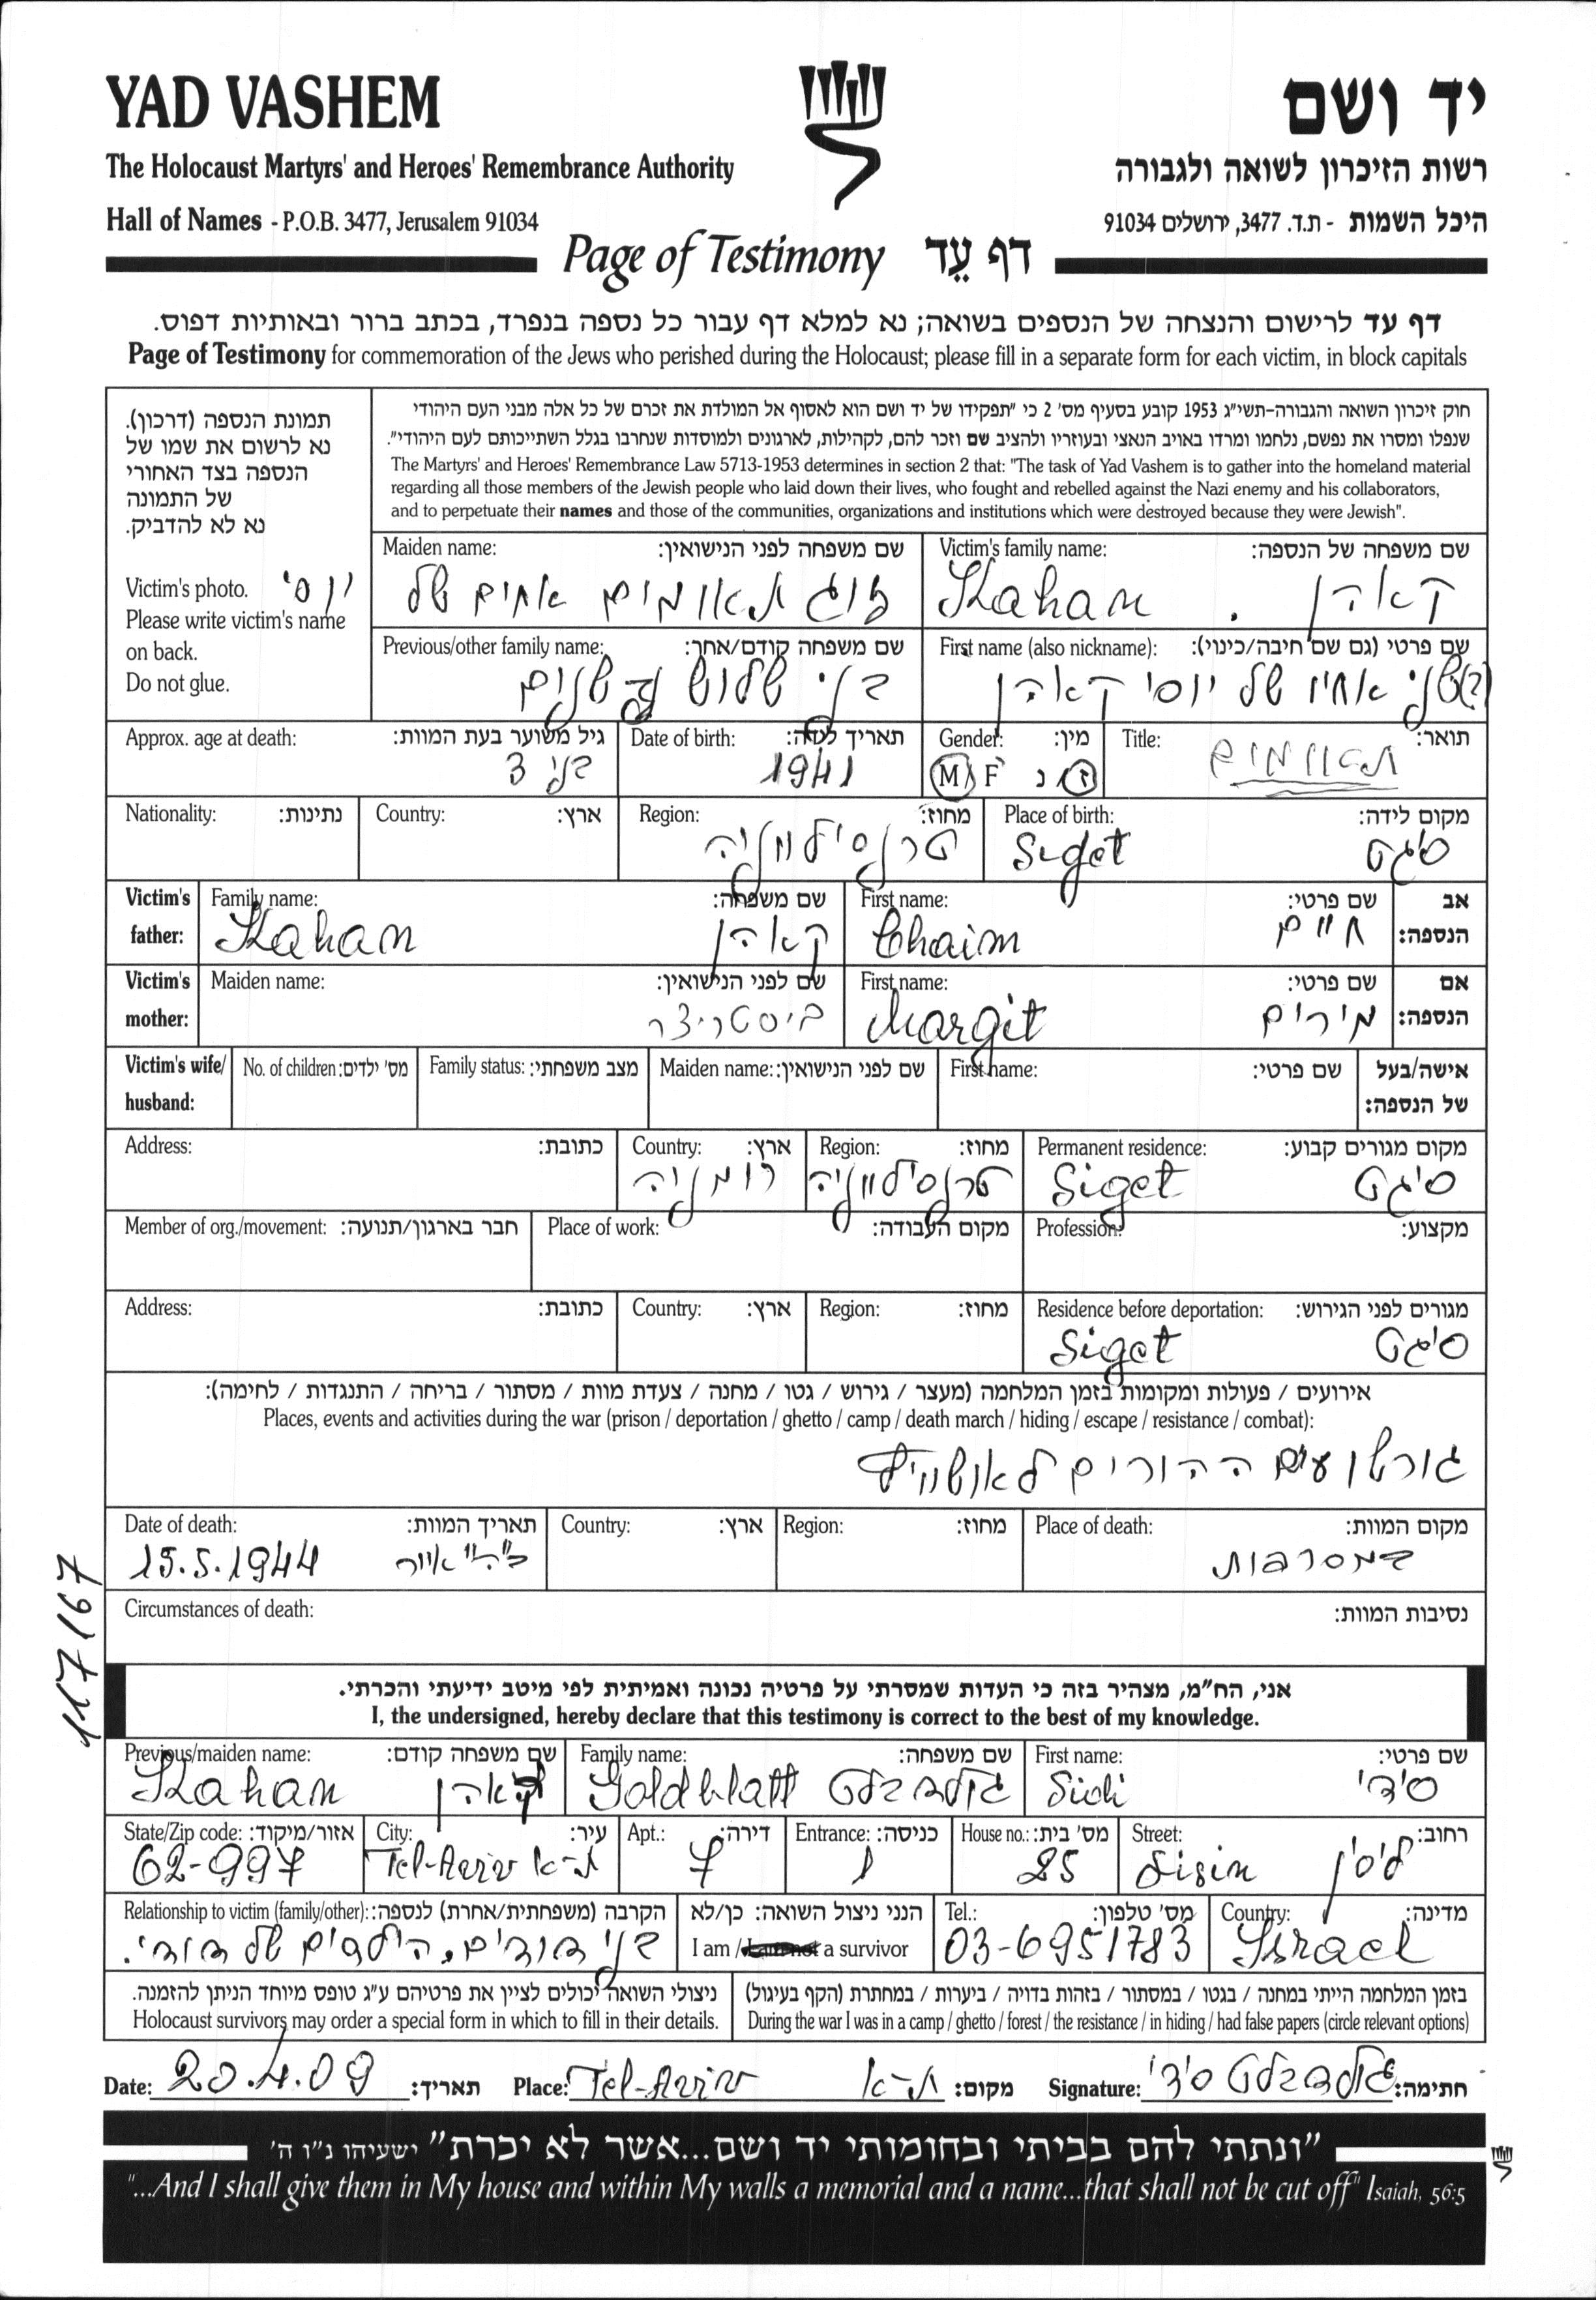 YAD VASHEM
יד ושם
The Holocaust Martyrs' and Heroes' Remembrance Authority
רשות הזיכרון לשואה ולגבורה
Hall of Names - P.O.B. 3477, Jerusalem 91034
היכל השמות - ת.ד. 3477, ירושלים 91034
Page of Testimony דף עֵד
דף עד לרישום והנצחה של הנספים בשואה; נא למלא דף עבור כל נספה בנפרד, בכתב ברור ובאותיות דפוס.
Page of Testimony for commemoration of the Jews who perished during the Holocaust; please fill in a separate form for each victim, in block capitals
תמונת הנספה (דרכון).
נא לרשום את שמו של
הנספה בצד האחורי
של התמונה
נא לא להדביק.
Victim's photo.
Please write victim's name
on back.
Do not glue.
חוק זיכרון השואה והגבורה-תשי"ג 1953 קובע בסעיף מס' 2 כי "תפקידו של יד ושם הוא לאסוף אל המולדת את זכרם של כל אלה מבני העם היהודי
שנפלו ומסרו את נפשם, נלחמו ומרדו באויב הנאצי ובעוזריו ולהציב שם וזכר להם, לקהילות, לארגונים ולמוסדות שנחרבו בגלל השתייכותם לעם היהודי".
The Martyrs' and Heroes' Remembrance Law 5713-1953 determines in section 2 that: "The task of Yad Vashem is to gather into the homeland material
regarding all those members of the Jewish people who laid down their lives, who fought and rebelled against the Nazi enemy and his collaborators,
and to perpetuate their names and those of the communities, organizations and institutions which were destroyed because they were Jewish".
Victim's family name: שם משפחה של הנספה:
Kahan קאהן
Maiden name: שם משפחה לפני הנישואין:
זוג תאומים אחים של יוסי
First name (also nickname): שם פרטי (גם שם חיבה/כינוי):
(2) שני אחיו של יוסי קאהן
Previous/other family name: שם משפחה קודם/אחר:
בני שלוש שנים
Title: תואר:
תאומים
Gender: מין:
M / F ז / נ
Date of birth: תאריך לידה:
1941
Approx. age at death: גיל משוער בעת המוות:
בני 3
Place of birth: מקום לידה:
Siget סיגט
Region: מחוז:
טרנסילווניה
Country: ארץ:
Nationality: נתינות:
Victim's father: אב הנספה:
First name: שם פרטי:
Chaim חיים
Family name: שם משפחה:
Kahan קאהן
Victim's mother: אם הנספה:
First name: שם פרטי:
Margit מירים
Maiden name: שם לפני הנישואין:
ביסטריצר
Victim's wife/ husband: אישה/בעל של הנספה:
First name: שם פרטי:
Maiden name: שם לפני הנישואין:
Family status: מצב משפחתי:
No. of children: מס' ילדים:
Permanent residence: מקום מגורים קבוע:
Siget סיגט
Region: מחוז:
טרנסילווניה
Country: ארץ:
רומניה
Address: כתובת:
Profession: מקצוע:
Place of work: מקום העבודה:
Member of org./movement: חבר בארגון/תנועה:
Residence before deportation: מגורים לפני הגירוש:
Siget סיגט
Region: מחוז:
Country: ארץ:
Address: כתובת:
אירועים / פעולות ומקומות בזמן המלחמה (מעצר / גירוש / גטו / מחנה / צעדת מוות / מסתור / בריחה / התנגדות / לחימה):
Places, events and activities during the war (prison / deportation / ghetto / camp / death march / hiding / escape / resistance / combat):
גורשו עם ההורים לאושוויץ
Place of death: מקום המוות:
במסרפות
Region: מחוז:
Country: ארץ:
Date of death: תאריך המוות:
15.5.1944 אייר
Circumstances of death: נסיבות המוות:
117/67
אני, הח"מ, מצהיר בזה כי העדות שמסרתי על פרטיה נכונה ואמיתית לפי מיטב ידיעתי והכרתי.
I, the undersigned, hereby declare that this testimony is correct to the best of my knowledge.
First name: שם פרטי:
Sidi סידי
Family name: שם משפחה:
Goldblatt גולדבלט
Previous/maiden name: שם משפחה קודם:
Kahan קאהן
Street: רחוב:
Lisin ליסין
House no.: מס' בית:
25
Entrance: כניסה:
1
Apt.: דירה:
7
City: עיר:
Tel-Aviv ת-א
State/Zip code: אזור/מיקוד:
62-997
Country: מדינה:
Israel
Tel.: מס' טלפון:
03-6951783
הנני ניצול השואה: כן/לא
I am / I am not a survivor
Relationship to victim (family/other): הקרבה (משפחתית/אחרת) לנספה:
בני דודים, הילדים של דודי.
בזמן המלחמה הייתי במחנה / בגטו / במסתור / בזהות בדויה / ביערות / במחתרת (הקף בעיגול)
During the war I was in a camp / ghetto / forest / the resistance / in hiding / had false papers (circle relevant options)
ניצולי השואה יכולים לציין את פרטיהם ע"ג טופס מיוחד הניתן להזמנה.
Holocaust survivors may order a special form in which to fill in their details.
Date: 20.4.09 תאריך: Place: Tel-Aviv ת-א מקום: Signature: גולדבלט סידי חתימה:
"ונתתי להם בביתי ובחומותי יד ושם...אשר לא יכרת" ישעיהו נ"ו ה'
"...And I shall give them in My house and within My walls a memorial and a name...that shall not be cut off" Isaiah, 56:5